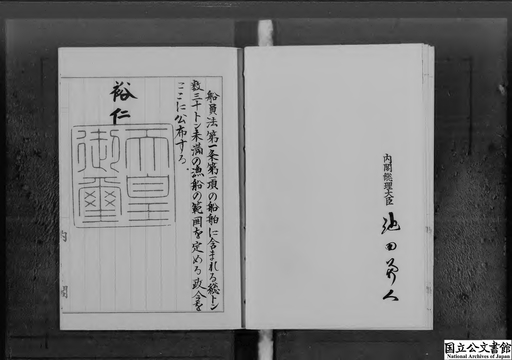 船員法第一条第一項の船舶に含まれる総トン
数三十トン未満の漁船の範囲を定める政令を
ここに公布する。
裕仁
天皇
御璽
内閣総理大臣
池田勇人
内閣
国立公文書館
National Archives of Japan